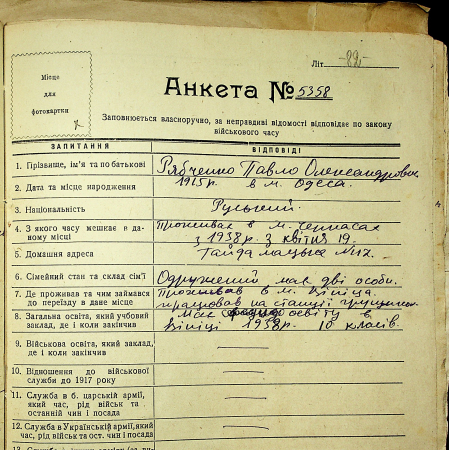 Літ. -82-
Місце
для
фотокартки
Анкета № 5358
Заповнюється власноручно, за неправдиві відомості відповідає по закону
військового часу
ЗАПИТАННЯ
ВІДПОВІДІ
1. Прізвище, ім'я та по батькові
Рябченко Павло Олександрович
2. Дата та місце народження
1915 р. в м. Одеса.
3. Національність
Руський.
4. З якого часу мешкає в даному місці
Проживає в м. Черкасах
з 1938 р. з квітня 19.
5. Домашня адреса
Гайдамацька №
6. Сімейний стан та склад сім'ї
Одружений, має дві особи.
7. Де проживав та чим займався
до переїзду в дане місце
Проживав в м. Вініца.
працював на станції
8. Загальна освіта, який учбовий
заклад, де і коли закінчив
Має освіту в
Вініці 1938 р. 10 класів.
9. Військова освіта, який заклад,
де і коли закінчив
10. Відношення до військової
служби до 1917 року
11. Служба в б. царській армії,
який час, рід військ та
останній чин і посада
12. Служба в Українській армії, який
час, рід військ та ост. чин і посада